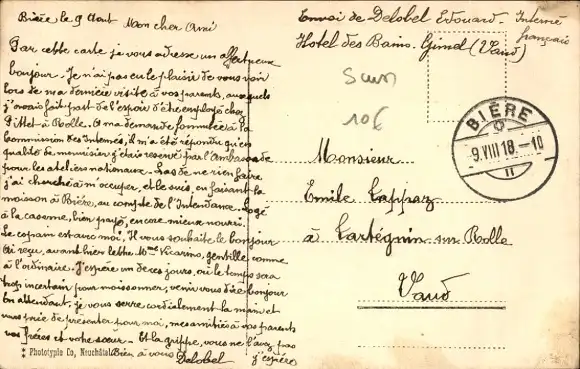 Bière le 9 Août Mon cher Ami
Par cette carte je vous adresse un affectueux
bonjour. Je n'ai pas eu le plaisir de vous voir
lors de ma dernière visite à vos parents, auxquels
j'avais fait part de l'espoir d'être employé chez
Pittet à Rolle. A ma demande formulée à la
Commission des Internés, il m'a été répondu qu'en
qualité de menuisier j'étais réservé par l'Ambassade
pour les ateliers nationaux. Las de ne rien faire
j'ai cherché à m'occuper, et le suis, en faisant la
moisson à Bière, au compte de l'Intendance. Logé
à la caserne, bien payé, encore mieux nourri.
Le copain est avec moi, Il vous souhaite le bonjour
Ai reçu, avant hier lettre Mme Vicarino, gentille comme
à l'ordinaire. J'espère un de ces jours, où le temps sera
trop incertain pour moissonner, venir vous dire bonjour
En attendant, je vous serre cordialement la main et
vous prie de présenter pour moi, mes amitiés à vos parents
vos frères et votre soeur. Et la grippe, vous ne l'avez pas
j'espère
Bien à vous Delobel
* Phototypie Co, Neuchâtel
Envoi de Delobel Edouard. Interné
français
Hotel des Bains. Gimel (Vaud)
10€
BIÈRE
9.VIII 18.-10
Monsieur
Emile Cappaz
à Tartegnin sur Rolle
Vaud